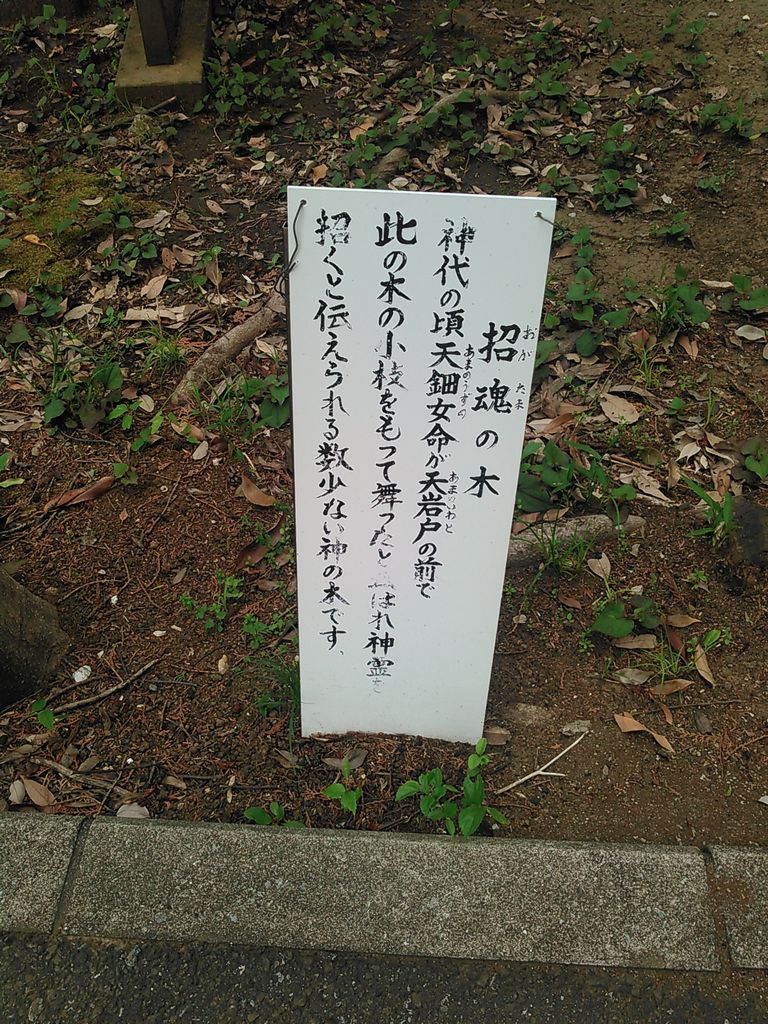 招魂の木
おがたま
神代の頃天鈿女命が天岩戸の前で
あまのうずめの
あまのいわと
此の木の小枝をもって舞ったと はれ神霊を
招くと伝えられる数少ない神の木です.